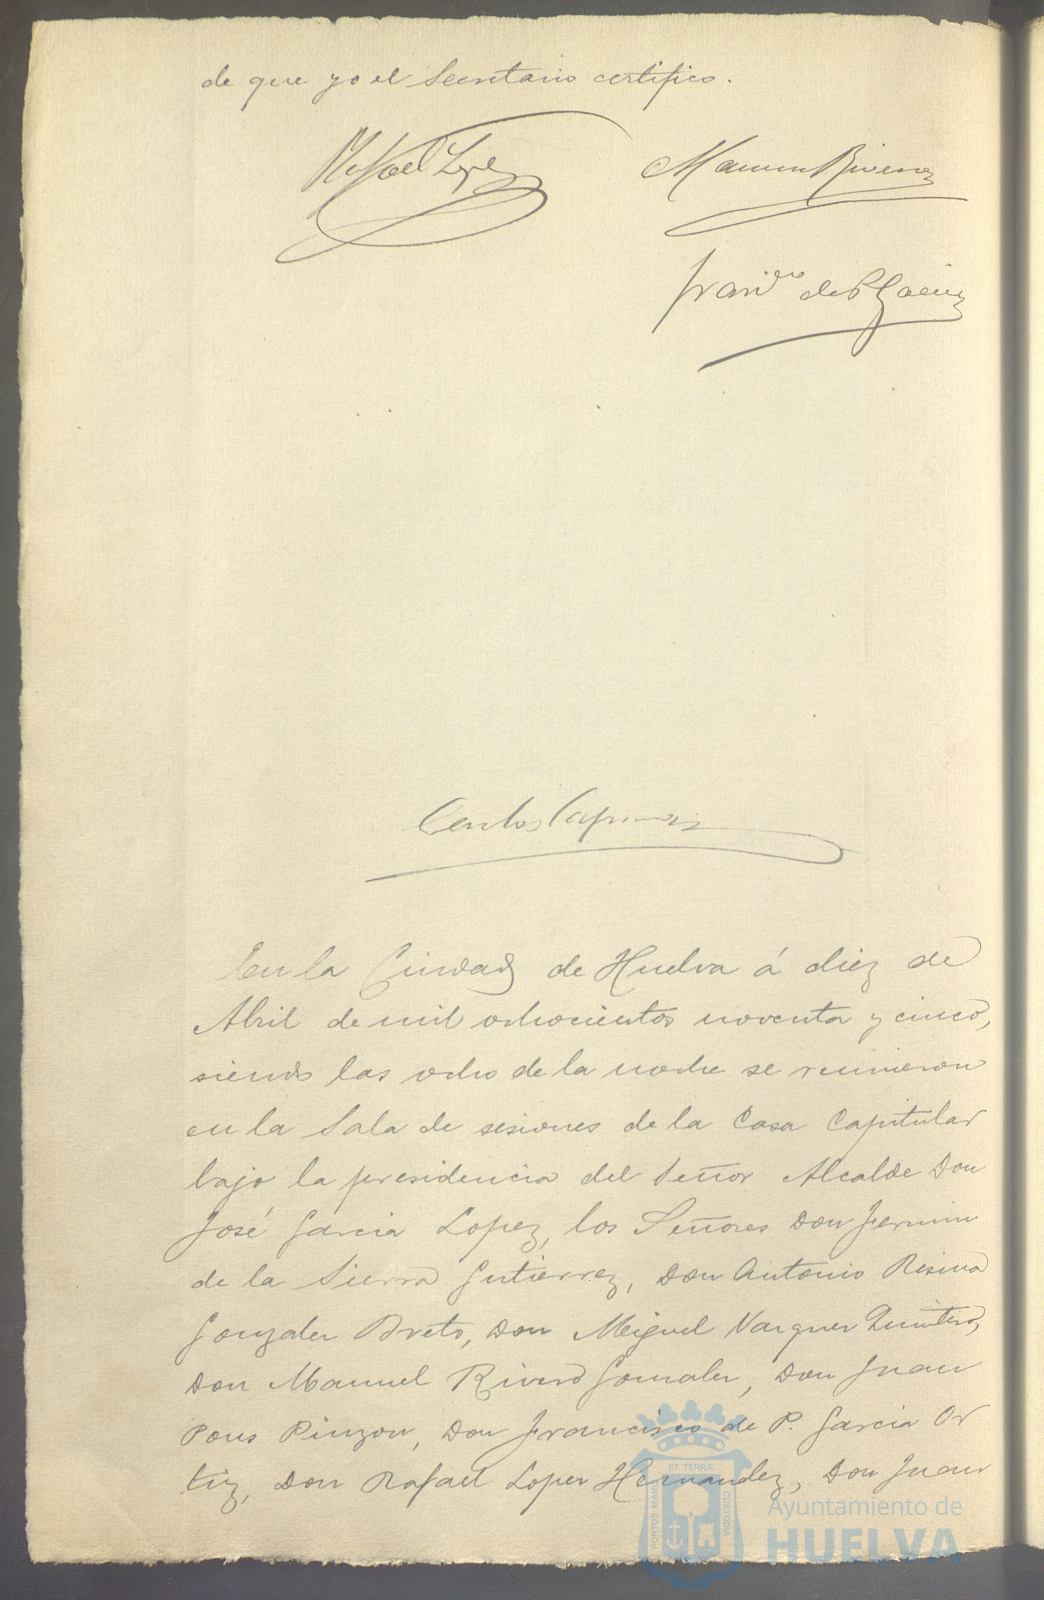 de que yo el Secretario certifico.
Rafael Lopez
Manuel Rivero
Franco de P. Garcia
Carlos
En la Ciudad de Huelva á diez de
Abril de mil ochocientos noventa y cinco,
siendo las ocho de la noche se reunieron
en la Sala de sesiones de la Casa Capitular
bajo la presidencia del Señor Alcalde Don
José Garcia Lopez, los Señores Don Fermin
de la Sierra Gutierrez, Don Antonio Resina
Gonzalez Preto, Don Miguel Vazquez Quintero,
Don Manuel Rivero Gonzalez, Don Juan
Pons Pinzon, Don Francisco de P. Garcia Or
tiz, Don Rafael Lopez Hernandez, Don Juan
PORTUS MARIS ET TERRÆ CUSTODIA
Ayuntamiento de
HUELVA